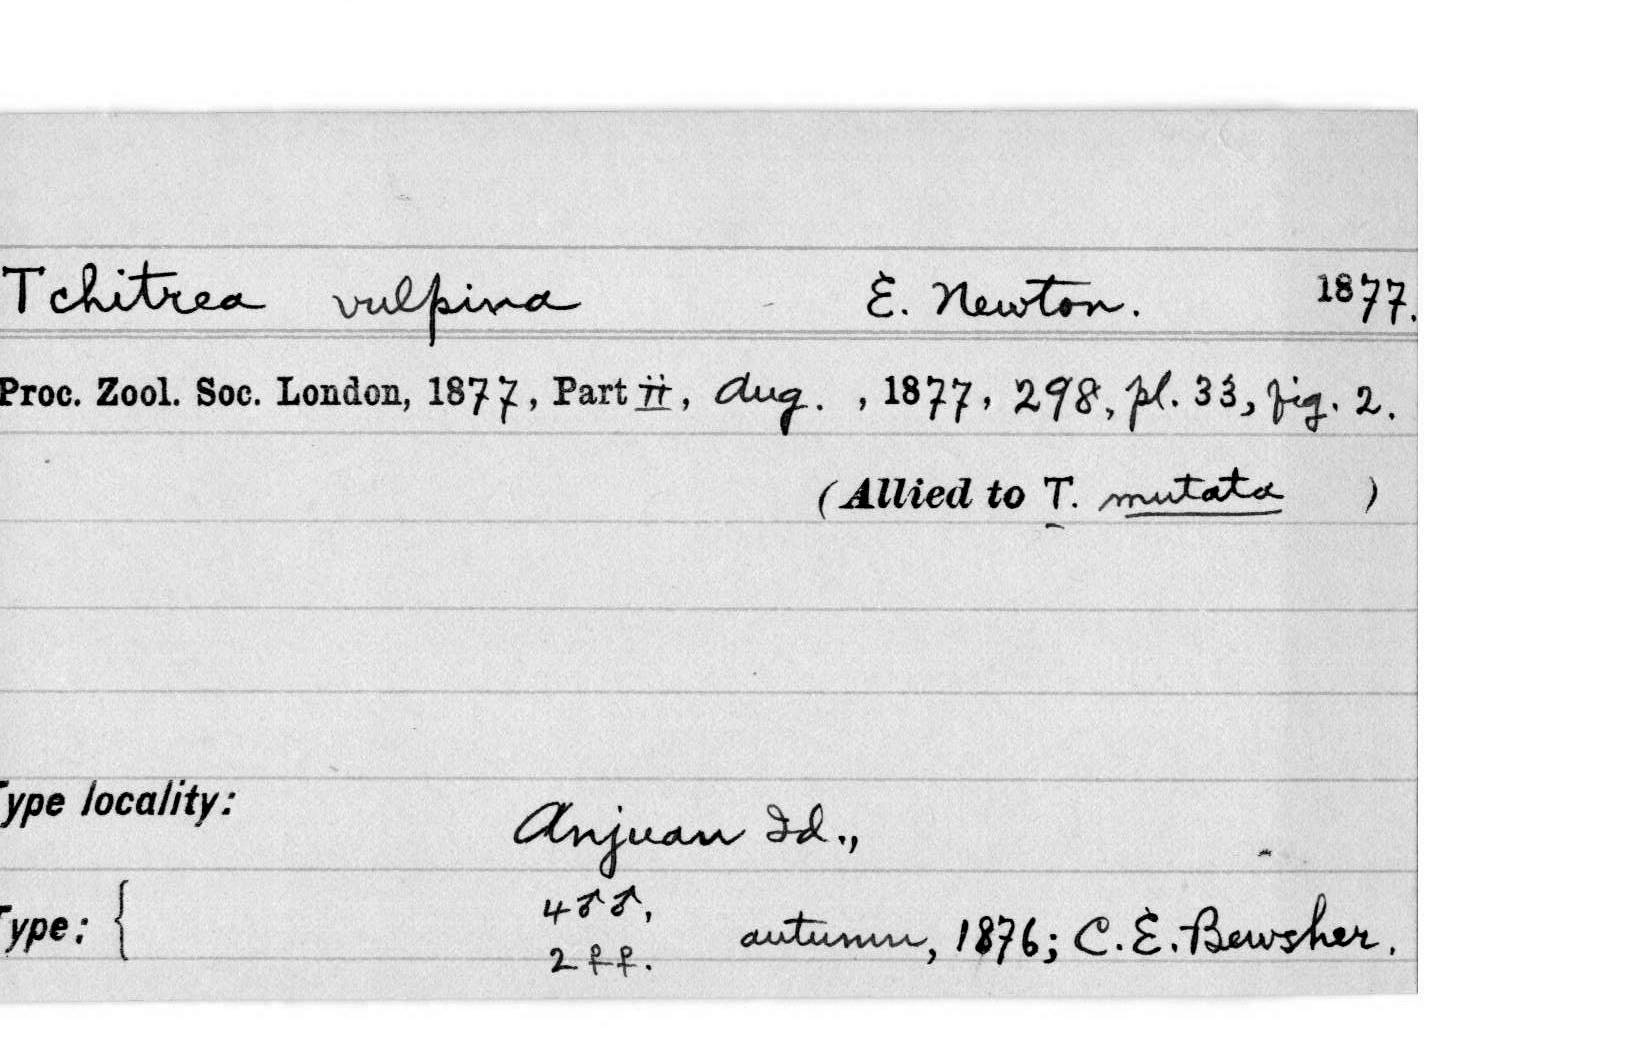 Tchitrea vulpina E. Newton. 1877.
Proc. Zool. Soc. London, 1877, Part II, Aug. , 1877, 298, pl. 33, fig. 2.
(Allied to T. mutata )
Type locality: Anjuan Id.,
Type: { 4 ♂♂,
2 ♀♀. autumn, 1876; C. E. Bewsher.